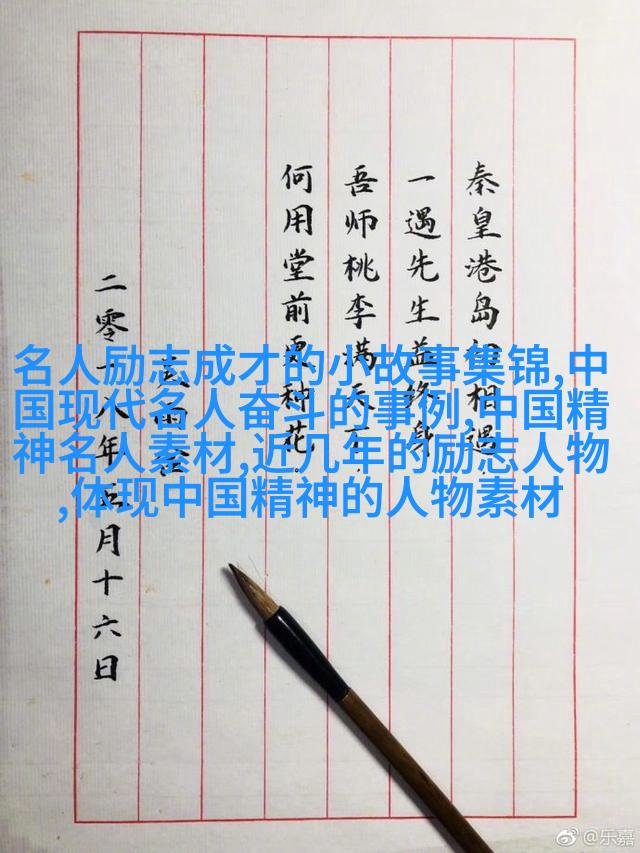 秦皇港岛相遇
一遇先生益终身
吾师桃李满天下
何用堂前更种花
二零一八年五月十六日
名人励志成才的小故事集锦,中
国现代名人奋斗的事例,中国精
神名人素材,近几年的励志人物
,体现中国精神的人物素材
@乐嘉